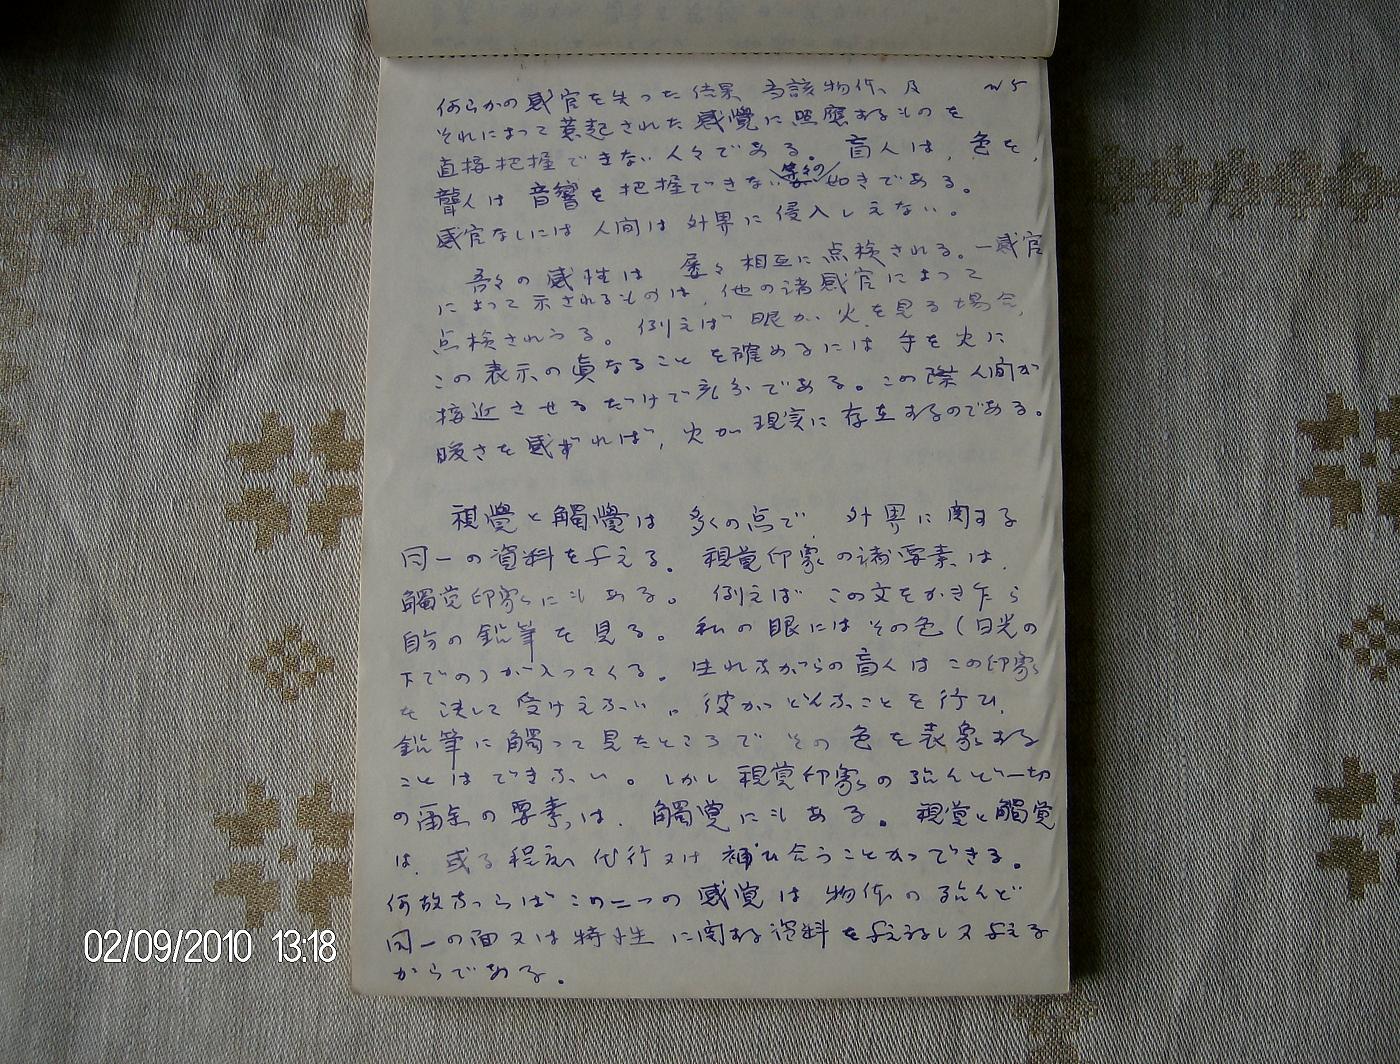 何らかの感官を失った結果、当該物体、及
N5
それによって惹起された感覺に照應するものを
直接把握できない人々である。盲人は、色を、
聾人は音響を把握できない等々の如きである。
感官なしには人間は外界に侵入しえない。
吾々の感性は屡々相互に点検される。一感官
によって示されるものは、他の諸感官によって
点検されうる。例えば眼が火を見る場合、
この表示の真なることを確めるには手を火に
接近させるだけで充分である。この際人間が
暖さを感ずれば、火が現実に存在するのである。
視覺と觸覺は多くの点で外界に関する
同一の資料を与える。視覚印象の諸要素は、
觸覚印象にもある。例えばこの文をかき乍ら
自分の鉛筆を見る。私の眼にはその色(日光の
下での)が入ってくる。生れながらの盲人はこの印象
を決して受けえない。彼がどんなことを行ひ、
鉛筆に觸って見たところでその色を表象する
ことはできない。しかし視覚印象の殆んど一切
の爾余の要素は、觸覚にもある。視覚と觸覚
は、或る程度代行又は補ひ合うことができる。
何故ならばこの二つの感覚は物体の殆んど
同一の面又は特性に関する資料を与え
からである。